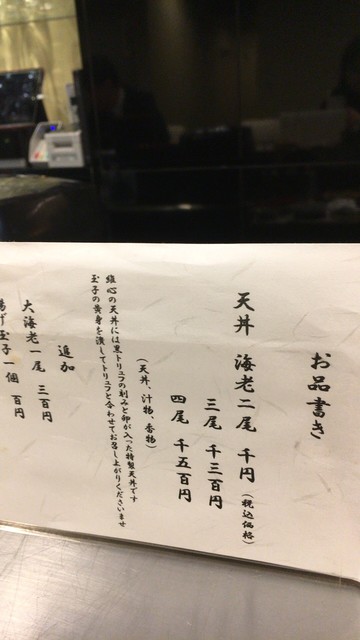 お品書き
天丼 海老二尾 千円 (税込価格)
三尾 千三百円
四尾 千五百円
(天丼、汁物、香物)
維心の天丼には黒トリュフの刻みと卵が入った特製天丼です
玉子の黄身を潰してトリュフと合わせてお召し上がりくださいませ
追加
大海老一尾 三百円
揚げ玉子一個 百円